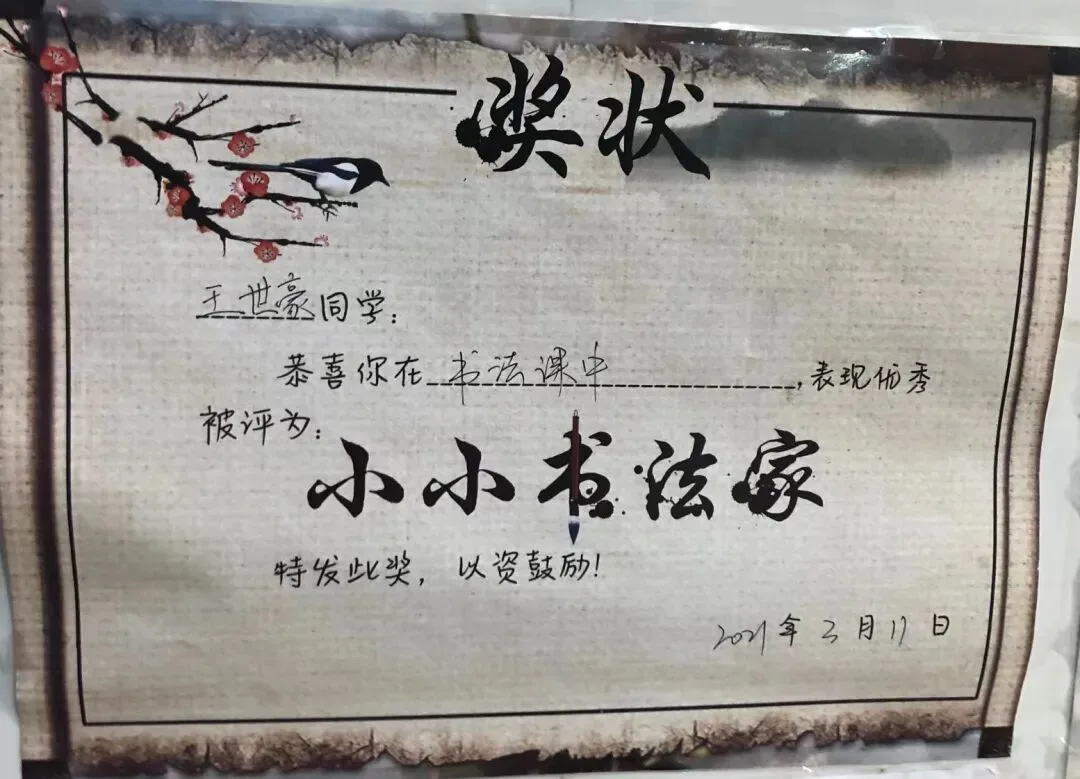 奖状
王世豪同学：
恭喜你在书法课中，表现优秀
被评为：
小小书法家
特发此奖，以资鼓励！
2021年3月17日